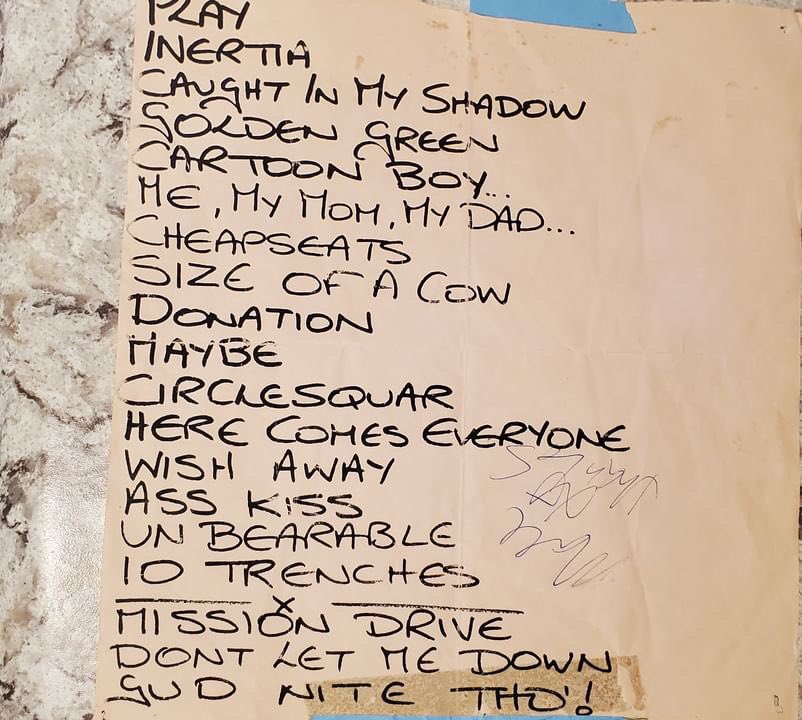 PLAY
INERTIA
CAUGHT IN MY SHADOW
GOLDEN GREEN
CARTOON BOY...
ME, MY MOM, MY DAD...
CHEAPSEATS
SIZE OF A COW
DONATION
MAYBE
CIRCLESQUAR
HERE COMES EVERYONE
WISH AWAY
ASS KISS
UN BEARABLE
10 TRENCHES
X
MISSION DRIVE
DONT LET ME DOWN
GUD NITE THO'!